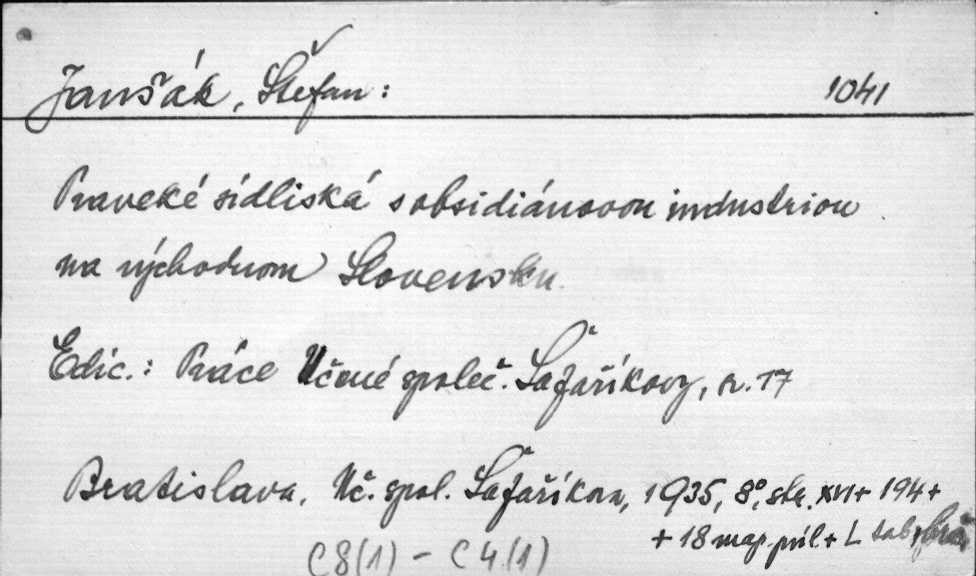 Janšák, Štefan: 1041
Praveké sídliská s obsidiánovou industriou
na východnom Slovensku.
Edic.: Práce Učené společ. Šafaříkovy, sv. 17
Bratislava, Uč. spol. Šafaříkova, 1935, 8°, str. XVI + 194 +
+ 18 map. příl. + L tab.,
C8(1) - C4(1)